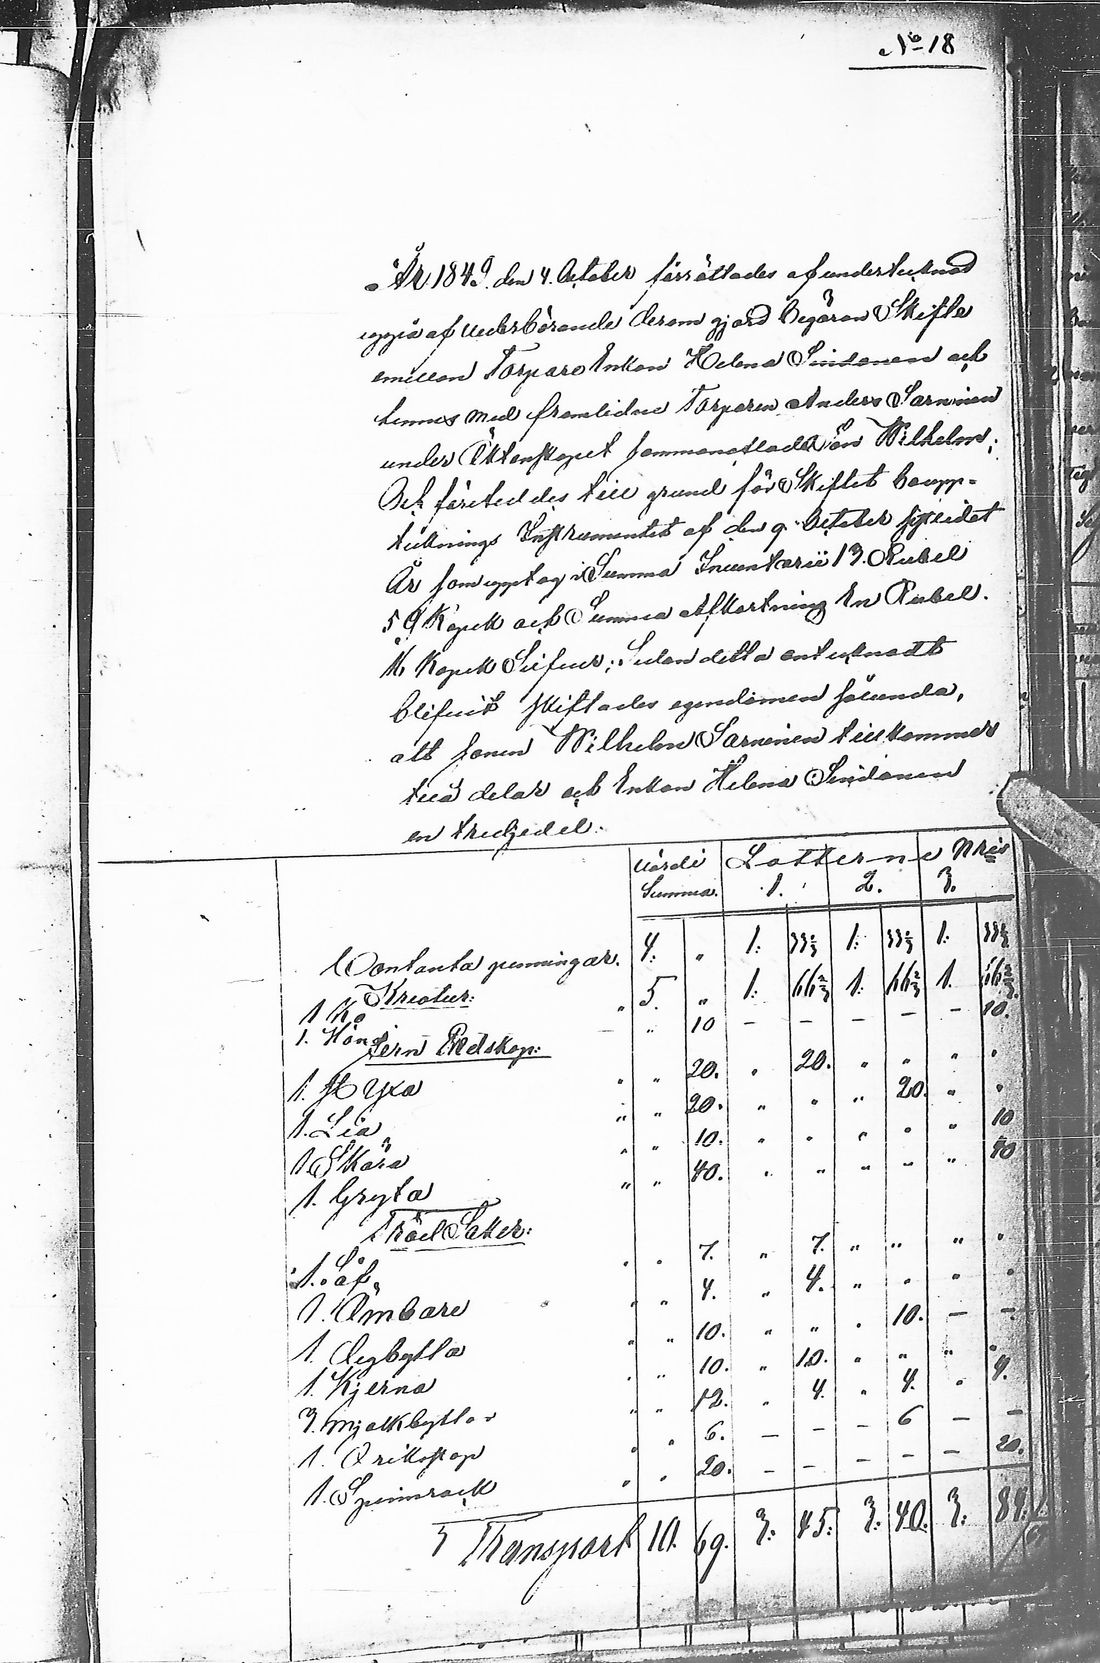 No 18
År 1849 den 4. October förrättades af undertecknad
uppå af vederbörande derom gjord begäran Skifte
emellan Torpare Enkan Helena Sindonen och
hennes med framlidne Torparen Anders Sarninen
under Äktenskapet sammanaflade Son Wilhelm;
Och företeddes till grund för Skiftet boupp-
tecknings Instrumentet af den 9 October sistledet
År som upptog i Summa Inventarii 13. Rubel
59 Kopek och Summa Afkortning En Rubel
Kopek Silfver; Sedan detta antecknadt
blifvit skiftades egendomen sålunda,
att sonen Wilhelm Sarninen tillkommer
två delar och Enkan Helena Sindonen
en tredjedel.
Värdi Lotterne Pris
Summa. 1. 2. 3.
Contanta penningar. 4: " 1: 33⅓ 1: 33⅓ 1: 33⅓
Kreatur:
1 Ko " 5. " 1: 66⅔ 1: 66⅔ 1. 66⅔
1. Höna — " 10 — — — — — 10.
Jern Redskap:
1. Yxa " " 20. " 20. " " " "
1. Lia " " 20. " " " 20. " "
1 Skära " " 10. " " " " " 10
1. Gryta " " 40. " " " " " 40
Träd Saker:
1. Så " " 7. " 7. " " " "
1. Ämbare " " 4. " 4. " " " "
1. Degbytta " " 10. " " " 10. — —
1. Kjerna " " 10. " 10. " " " "
3. Mjölkbyttor " " 12. " 4. " 4. " 4.
1. Drikstop " " 6. — — — 6 — —
1. Spinnrock " " 20. — — — — — 20.
Transport 10. 69. 3: 45. 3: 40. 3: 84.